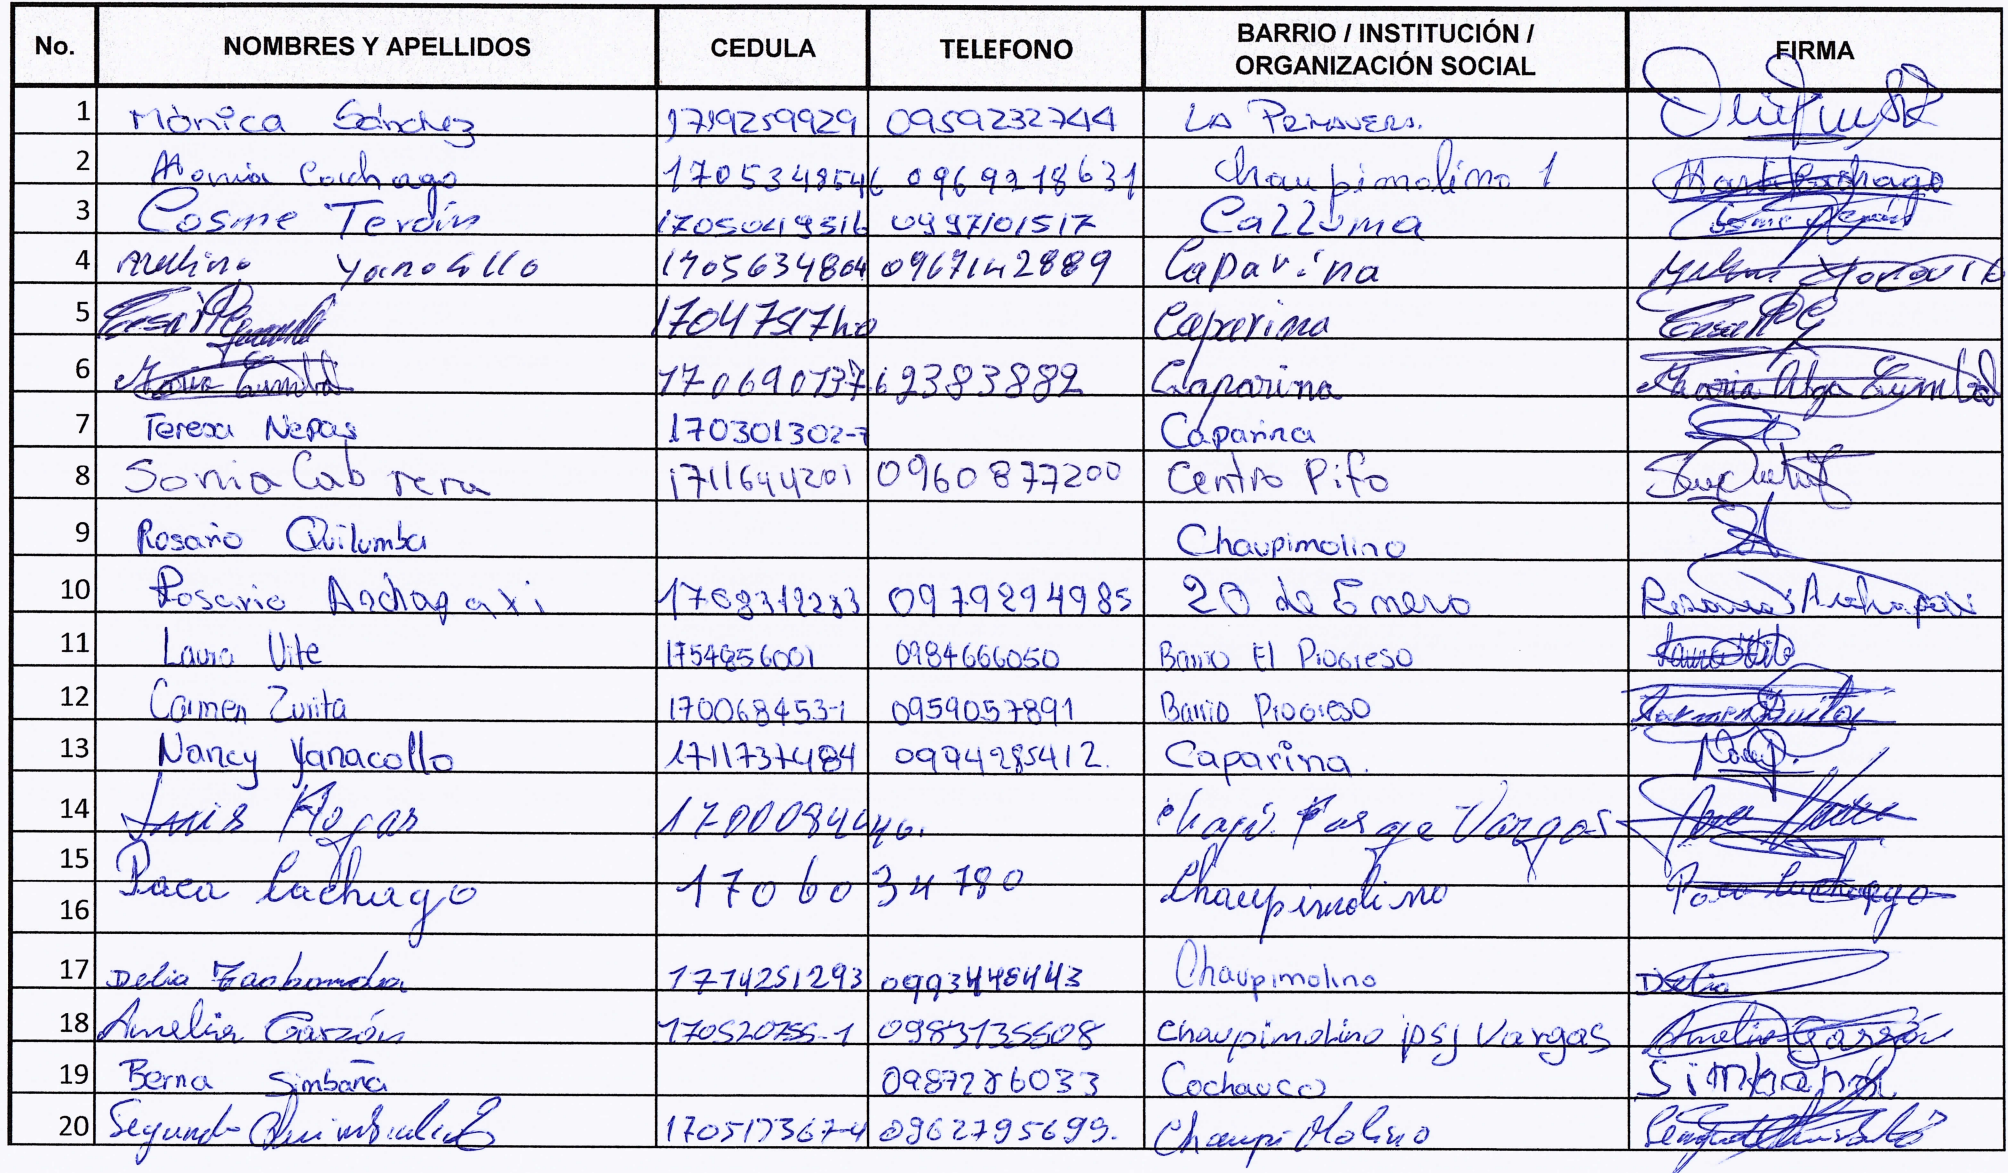 No. NOMBRES Y APELLIDOS CEDULA TELEFONO BARRIO / INSTITUCIÓN / ORGANIZACIÓN SOCIAL FIRMA
1 Mònica Sánchez 1719259929 0959232744 LA PRIMAVERA.
2 Cachago 1705348546 0969218631 Chaupimolino 1
3 Cosme Terán 0997101517 Calluma
4 Avelino Yanacollo 1705634804 0967142889 Caparina
5 Caparina
6 Maria 1706901376 2383882 Caparina Maria Olga
7 Teresa Nepas 170301302-7 Caparina
8 Sonia Cabrera 1711644201 0960877200 Centro Pifo
9 Rosario Quilumba Chaupimolino
10 Rosario Anchapaxi 0979294985 20 de Enero Rosario Anchapaxi
11 Laura Vite 1754856001 0984666050 Barrio El Progreso
12 Carmen Zurita 170068453-1 0959057891 Barrio Progreso
13 Nancy Yanacollo 1711737484 0994285412. Caparina.
14 Luis Rojas Vargas
15 Paca Cachago 1706034780 Chaupimolino Paca Cachago
16
17 Delia 1714251293 0993448443 Chaupimolino Delia
18 Amelia Garzón 170520755-1 0983135508 Chaupimolino psj Vargas Amelia Garzón
19 Berna Simbaña 0987286033 Cochauco Simbaña
20 Segundo 170517367-4 0962795699. Chaupi Molino